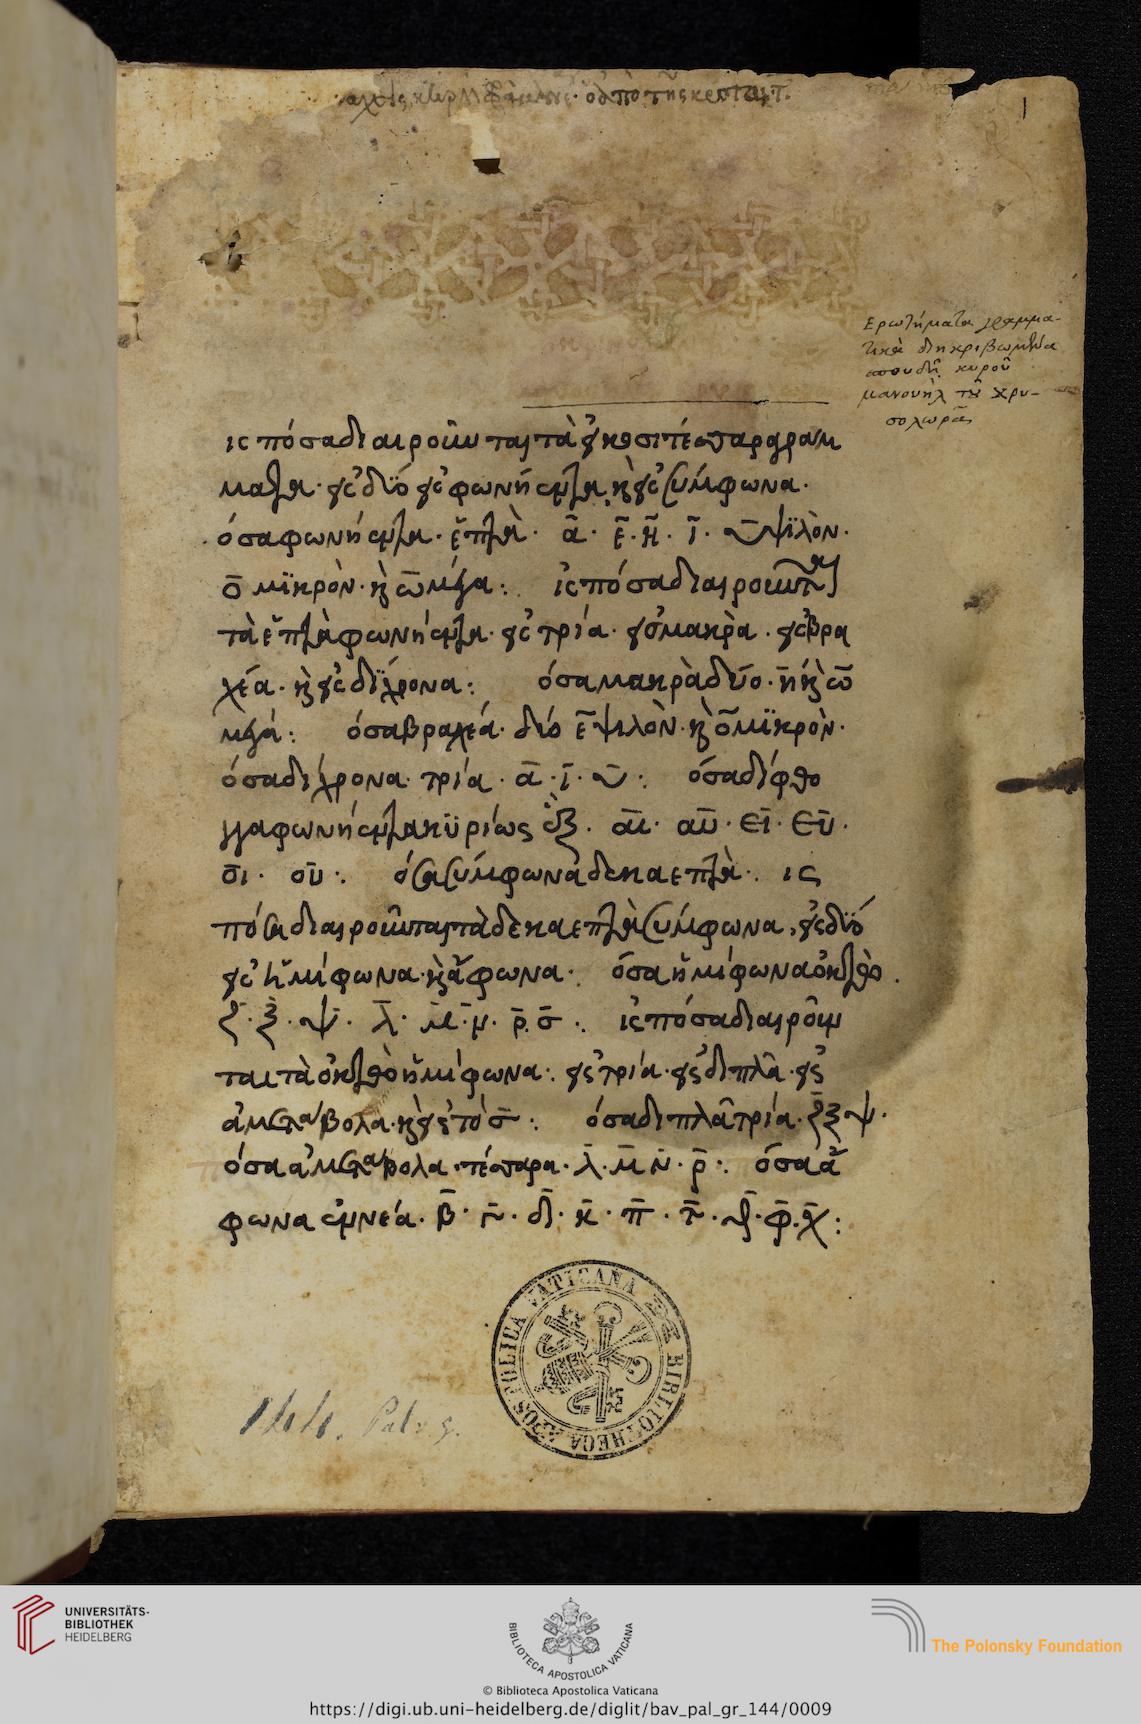 1
Ἐρωτήματα γραμμα-
τικὰ διηκριβωμένα
σπουδῇ κυροῦ
μανουὴλ τοῦ χρυ-
σολωρᾶ
ις πόσα διαιροῦνται τὰ εἴκοσι τέσσαρα γράμ
ματα· εἰς δύο· εἰς φωνήεντα, καὶ εἰς σύμφωνα·
ὅσα φωνήεντα· ἑπτὰ· ᾱ· ε̄· η̄· ῑ· ῡψιλὸν·
ο̄ μικρὸν· καὶ ω̄ μέγα: εἰς πόσα διαιροῦνται
τὰ ἑπτὰ φωνήεντα· εἰς τρία· εἰς μακρὰ· εἰς βρα
χέα· καὶ εἰς δίχρονα: ὅσα μακρὰ δύο· η̄ καὶ ω̄
μέγα: ὅσα βραχέα· δύο ε̄ ψιλὸν· καὶ ο̄ μικρὸν·
ὅσα δίχρονα· τρία· ᾱ· ῑ· ῡ: ὅσα δίφθο
γγα φωνήεντα κυρίως ἓξ· αι· αυ· ει· ευ·
οι· ου: ὅσα σύμφωνα δεκαεπτὰ: ις
πόσα διαιροῦνται τὰ δεκαεπτὰ σύμφωνα, εἰς δύο
εἰς ἡμίφωνα· καὶ ἄφωνα· ὅσα ἡμίφωνα ὀκτὼ.
ζ̄· ξ̄· ψ̄· λ̄· μ̄· ν̄· ρ̄· σ̄: εἰς πόσα διαιροῦν
ται τὰ ὀκτὼ ἡμίφωνα: εἰς τρία· εἰς διπλᾶ· εἰς
ἀμετάβολα· καὶ εἰς τὸ σ̄: ὅσα διπλᾶ τρία· ζ̄ ξ ψ·
ὅσα ἀμετάβολα· τέσσαρα· λ̄· μ̄ ν̄· ρ̄: ὅσα ἄ
φωνα ἐννέα· β̄· γ̄· δ̄· κ̄· π̄· τ̄· θ̄· φ̄· χ̄:
BIBLIOTHECA APOSTOLICA VATICANA
144. Pal. g.
UNIVERSITÄTS-
BIBLIOTHEK
HEIDELBERG
BIBLIOTECA APOSTOLICA VATICANA
The Polonsky Foundation
© Biblioteca Apostolica Vaticana
https://digi.ub.uni-heidelberg.de/diglit/bav_pal_gr_144/0009